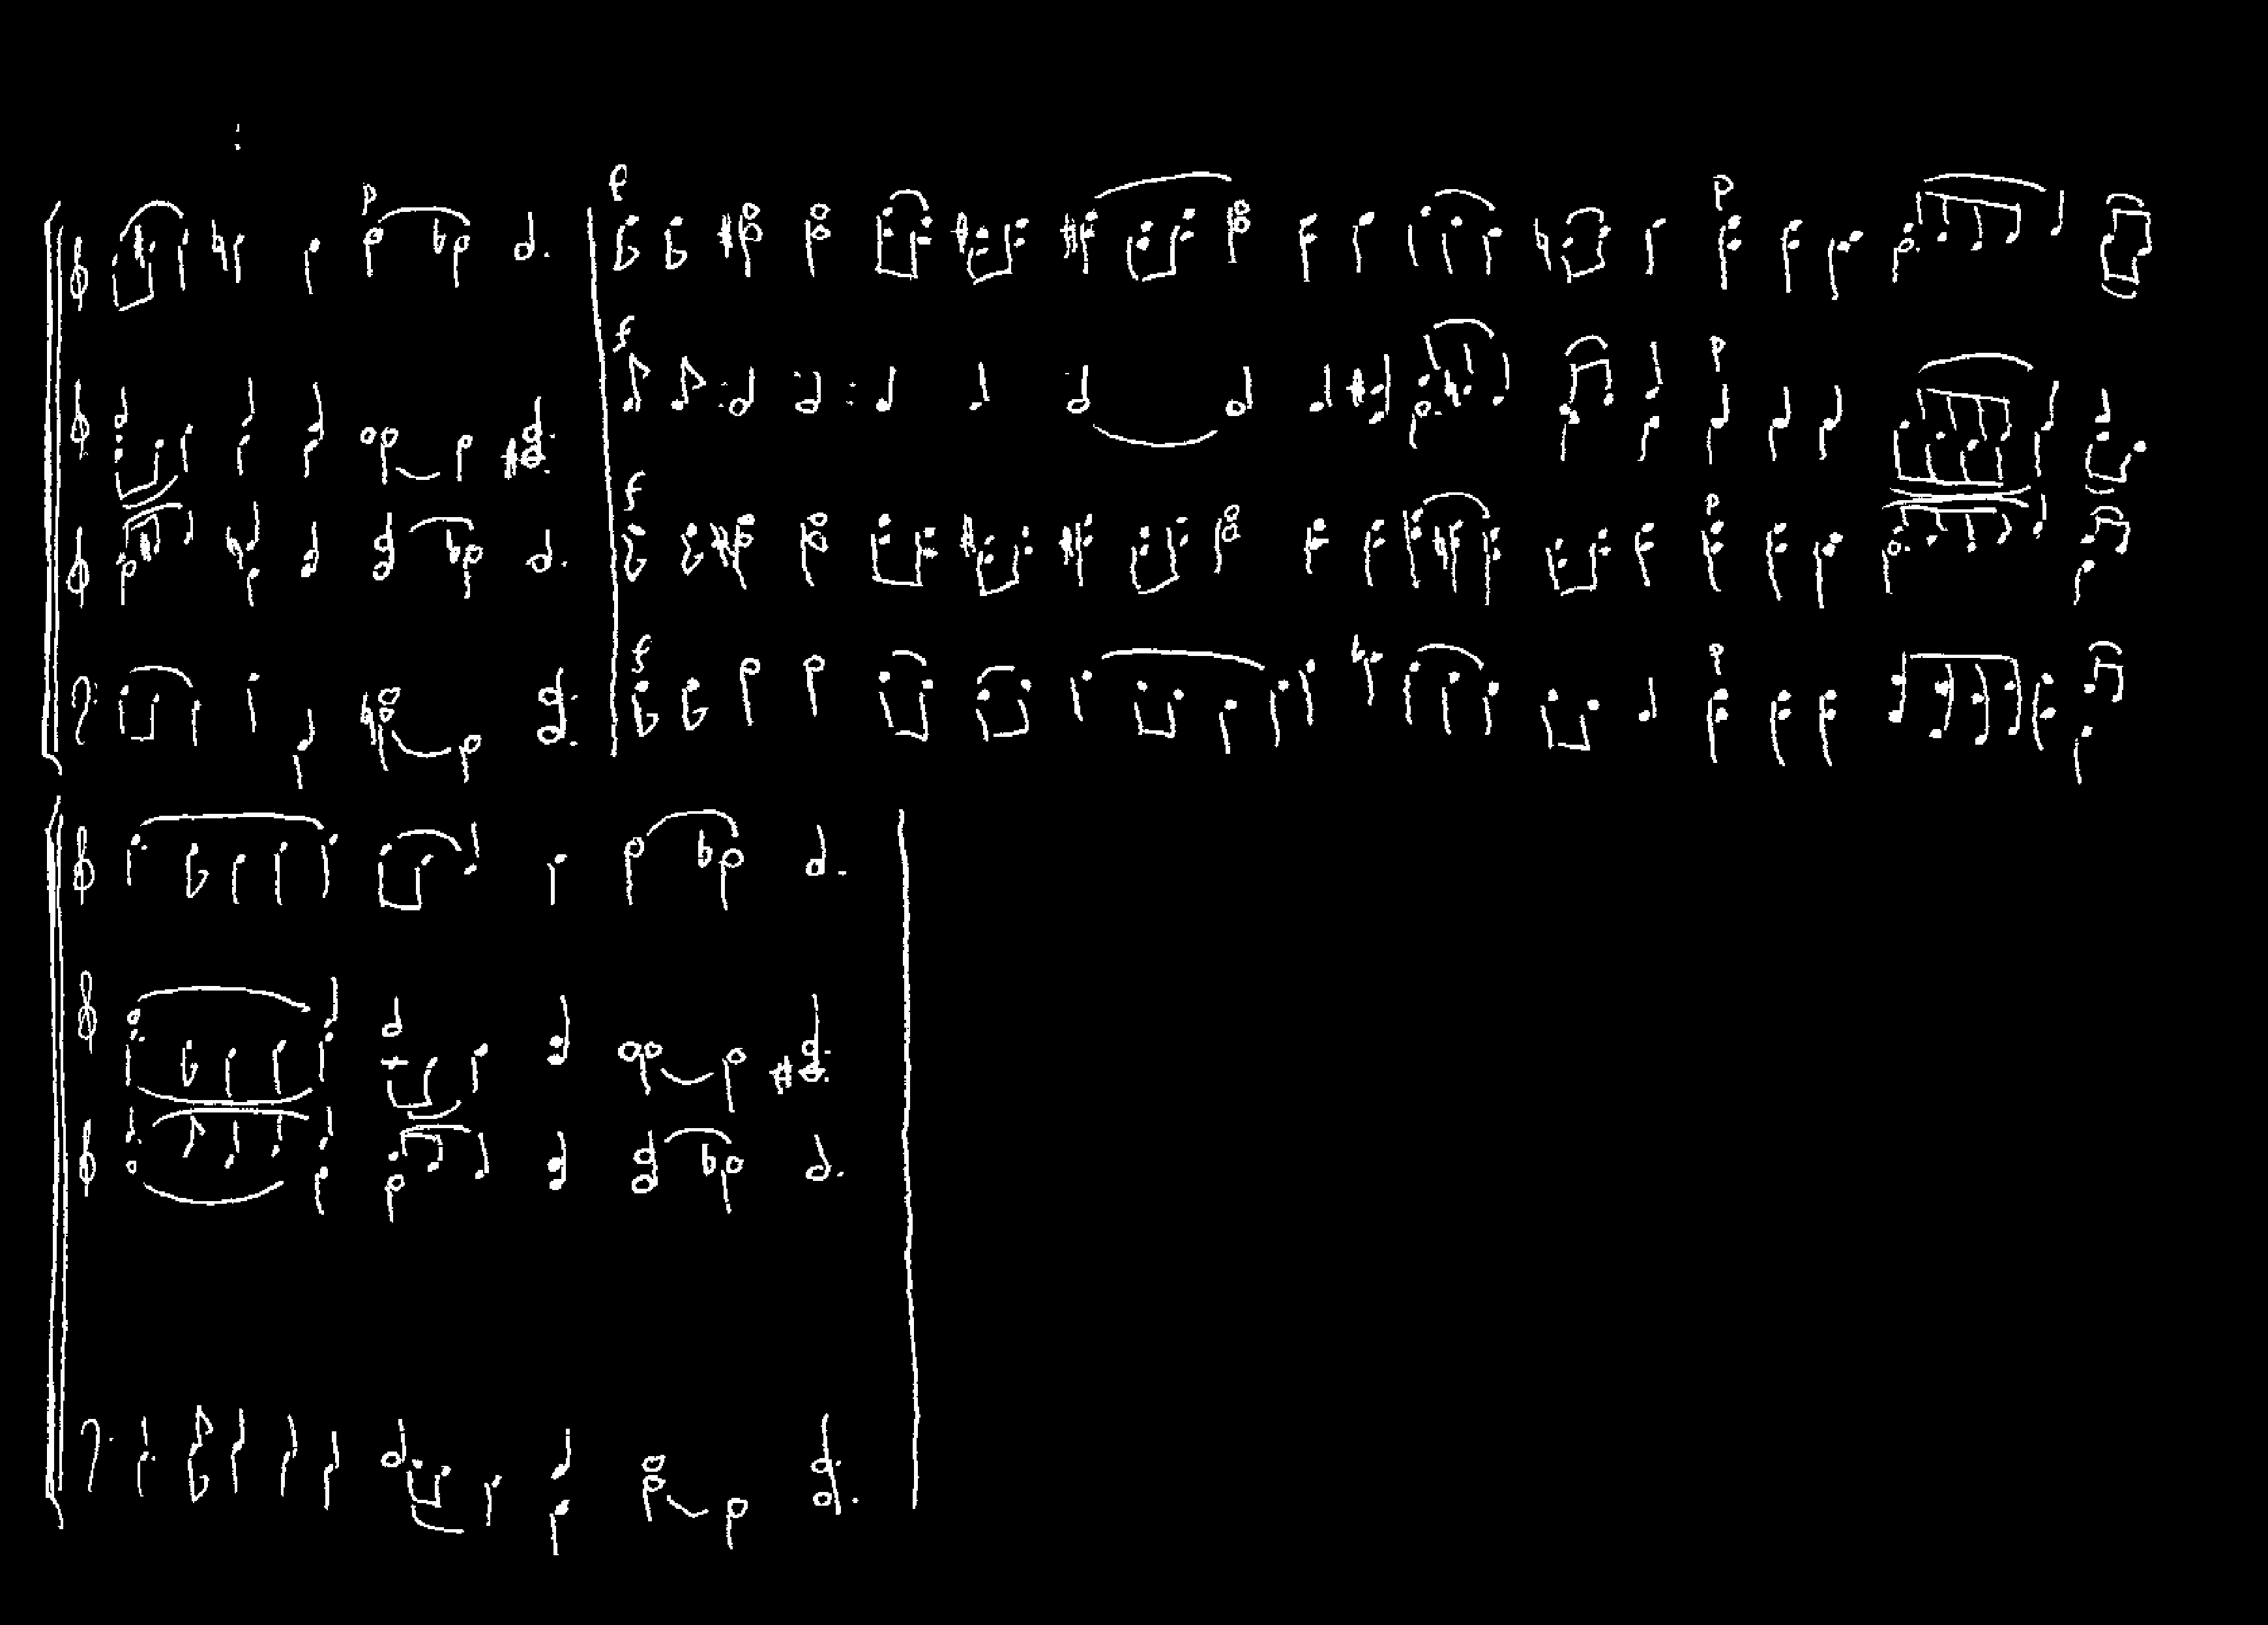 p f
p
f
p
f
p
f
p